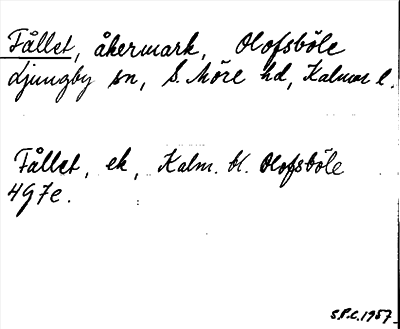 Fållet, åkermark, Olofsböle
Ljungby sn, S. Möre hd, Kalmar l.
Fållet, ek, Kalm. bl. Olofsböle
4G7e.
S.P.C. 1957.